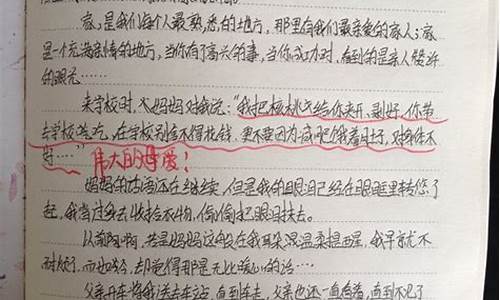 家,是我们每个人最熟悉的地方,那里有我们最亲爱的家人;家
是一个充满亲情的地方,当你有了高兴的事,当你成功时,看到的是亲人赞许
的眼光……
来学校时,妈妈对我说:"我把核桃给你夹开、剥好,你带
去学校吃,在学校别舍不得花钱,更不要因为减肥饿着肚子,对身体不
好……"伟大的母爱!
妈妈的话还在继续,但是我的眼泪已经在眼眶里转悠了
起,我背过身去收拾衣物,偷偷把眼泪抹去。
以前啊,若是妈妈这般在我耳朵温柔提醒,我早就不
耐烦了,而如今,却觉得那是无比暖心的话……
父亲开车将我送去车站,直到车走,父亲也还一直看着,直到不见了